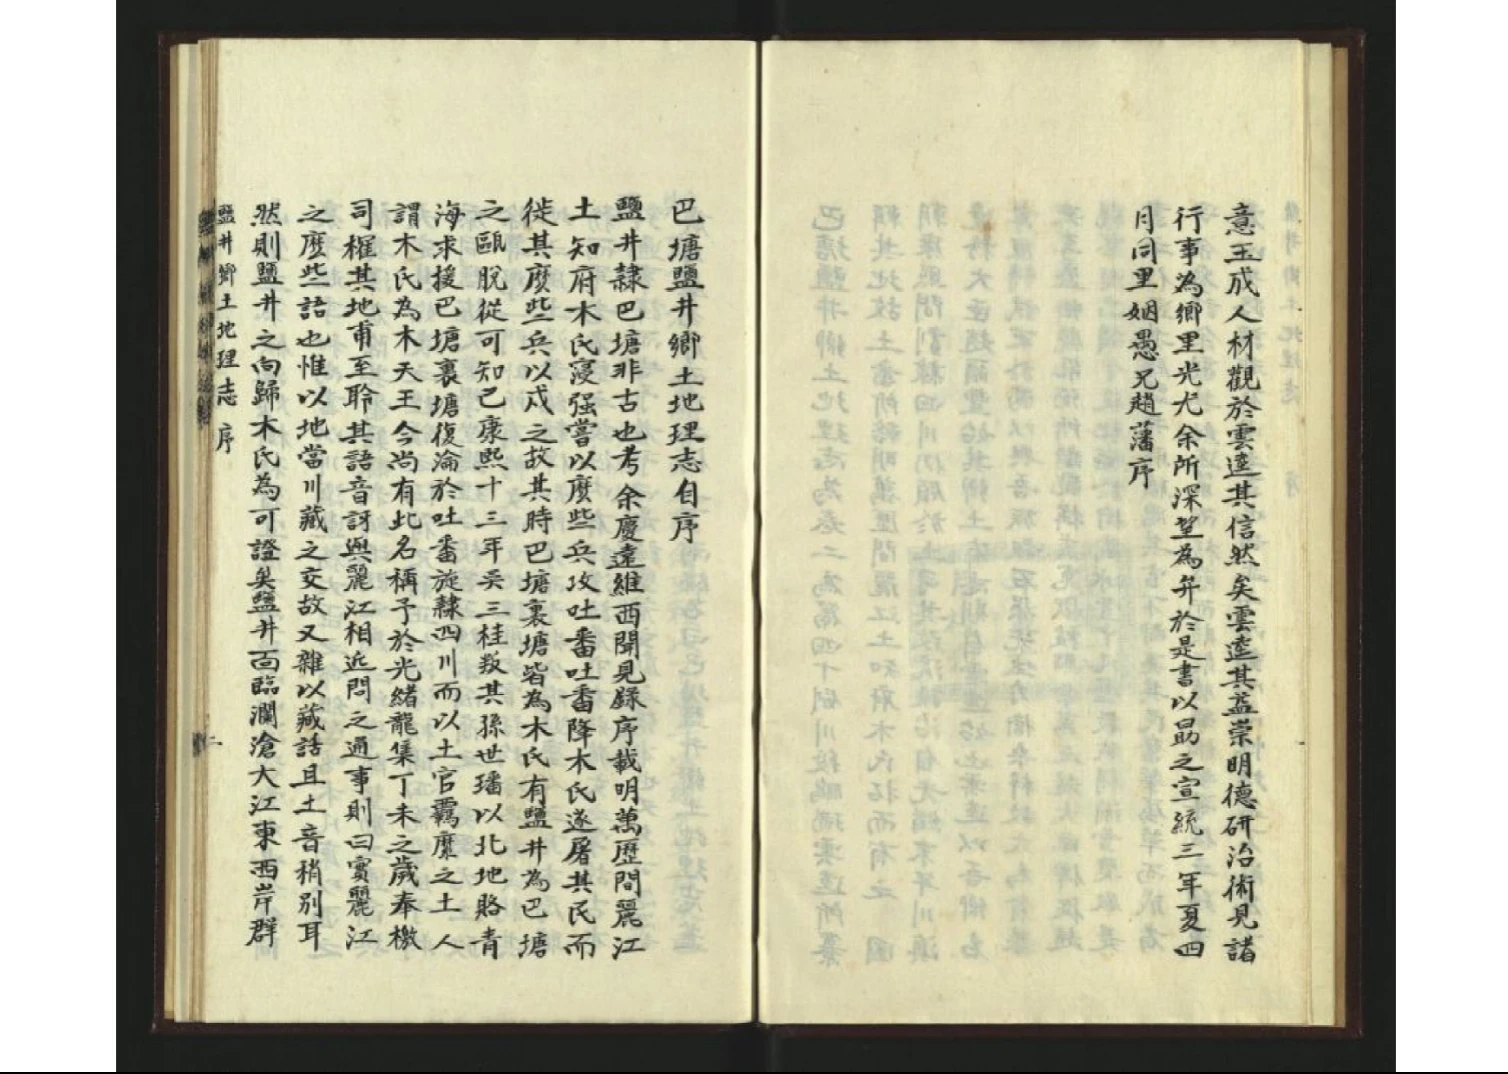 意玉成人材觀於雲逵其信然矣雲逵其益崇明德研治術見諸
行事為鄉里光尤余所深望為弁於是書以勗之宣統三年夏四
月同里姻愚兄趙藩序
巴塘鹽井鄉土地理志自序
鹽井隸巴塘非古也考余慶遠維西聞見錄序載明萬歷間麗江
土知府木氏寖强嘗以麼些兵攻吐番吐番降木氏遂屠其民而
徙其麼些兵以戍之故其時巴塘裏塘皆為木氏有鹽井為巴塘
之甌脫從可知已康熙十三年吳三桂叛其孫世璠以北地賂青
海求援巴塘裏塘復淪於吐番旋隸四川而以土官羈縻之土人
謂木氏為木天王今尚有此名稱予於光緒龍集丁未之歲奉檄
司榷其地甫至聆其語音訝與麗江相近問之通事則曰實麗江
之麽些語也惟以地當川藏之交故又雜以藏話且土音稍別耳
然則鹽井之向歸木氏為可證矣鹽井面臨瀾滄大江東西岸群
鹽井鄉土地理志 序
二